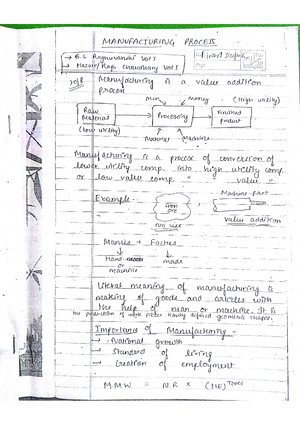 MANUFACTURING PROCESS
→ B.S Raghuwanshi Vol I
→ Hazari/Raja Chaudhary Vol I
Manufacturing is a value addition
process
Men Money (High utility)
Raw Material → Processing → Finished Product
(low utility) Material Machine
Manufacturing is a process of conversion of
lower utility comp. into high utility comp.
or low value comp. " " value "
Example - Iron ore Machine part
No use value addition
Manus + Factus
↓ ↓
Hand made
or
machine
Literal meaning of manufacturing is
making of goods and articles with
the help of man or machine. It is
the production of having defined geometric shapes.
Importance of Manufacturing -
→ National growth
→ Standard of living
→ Creation of employment
M M W = N.R × (HE)Tools